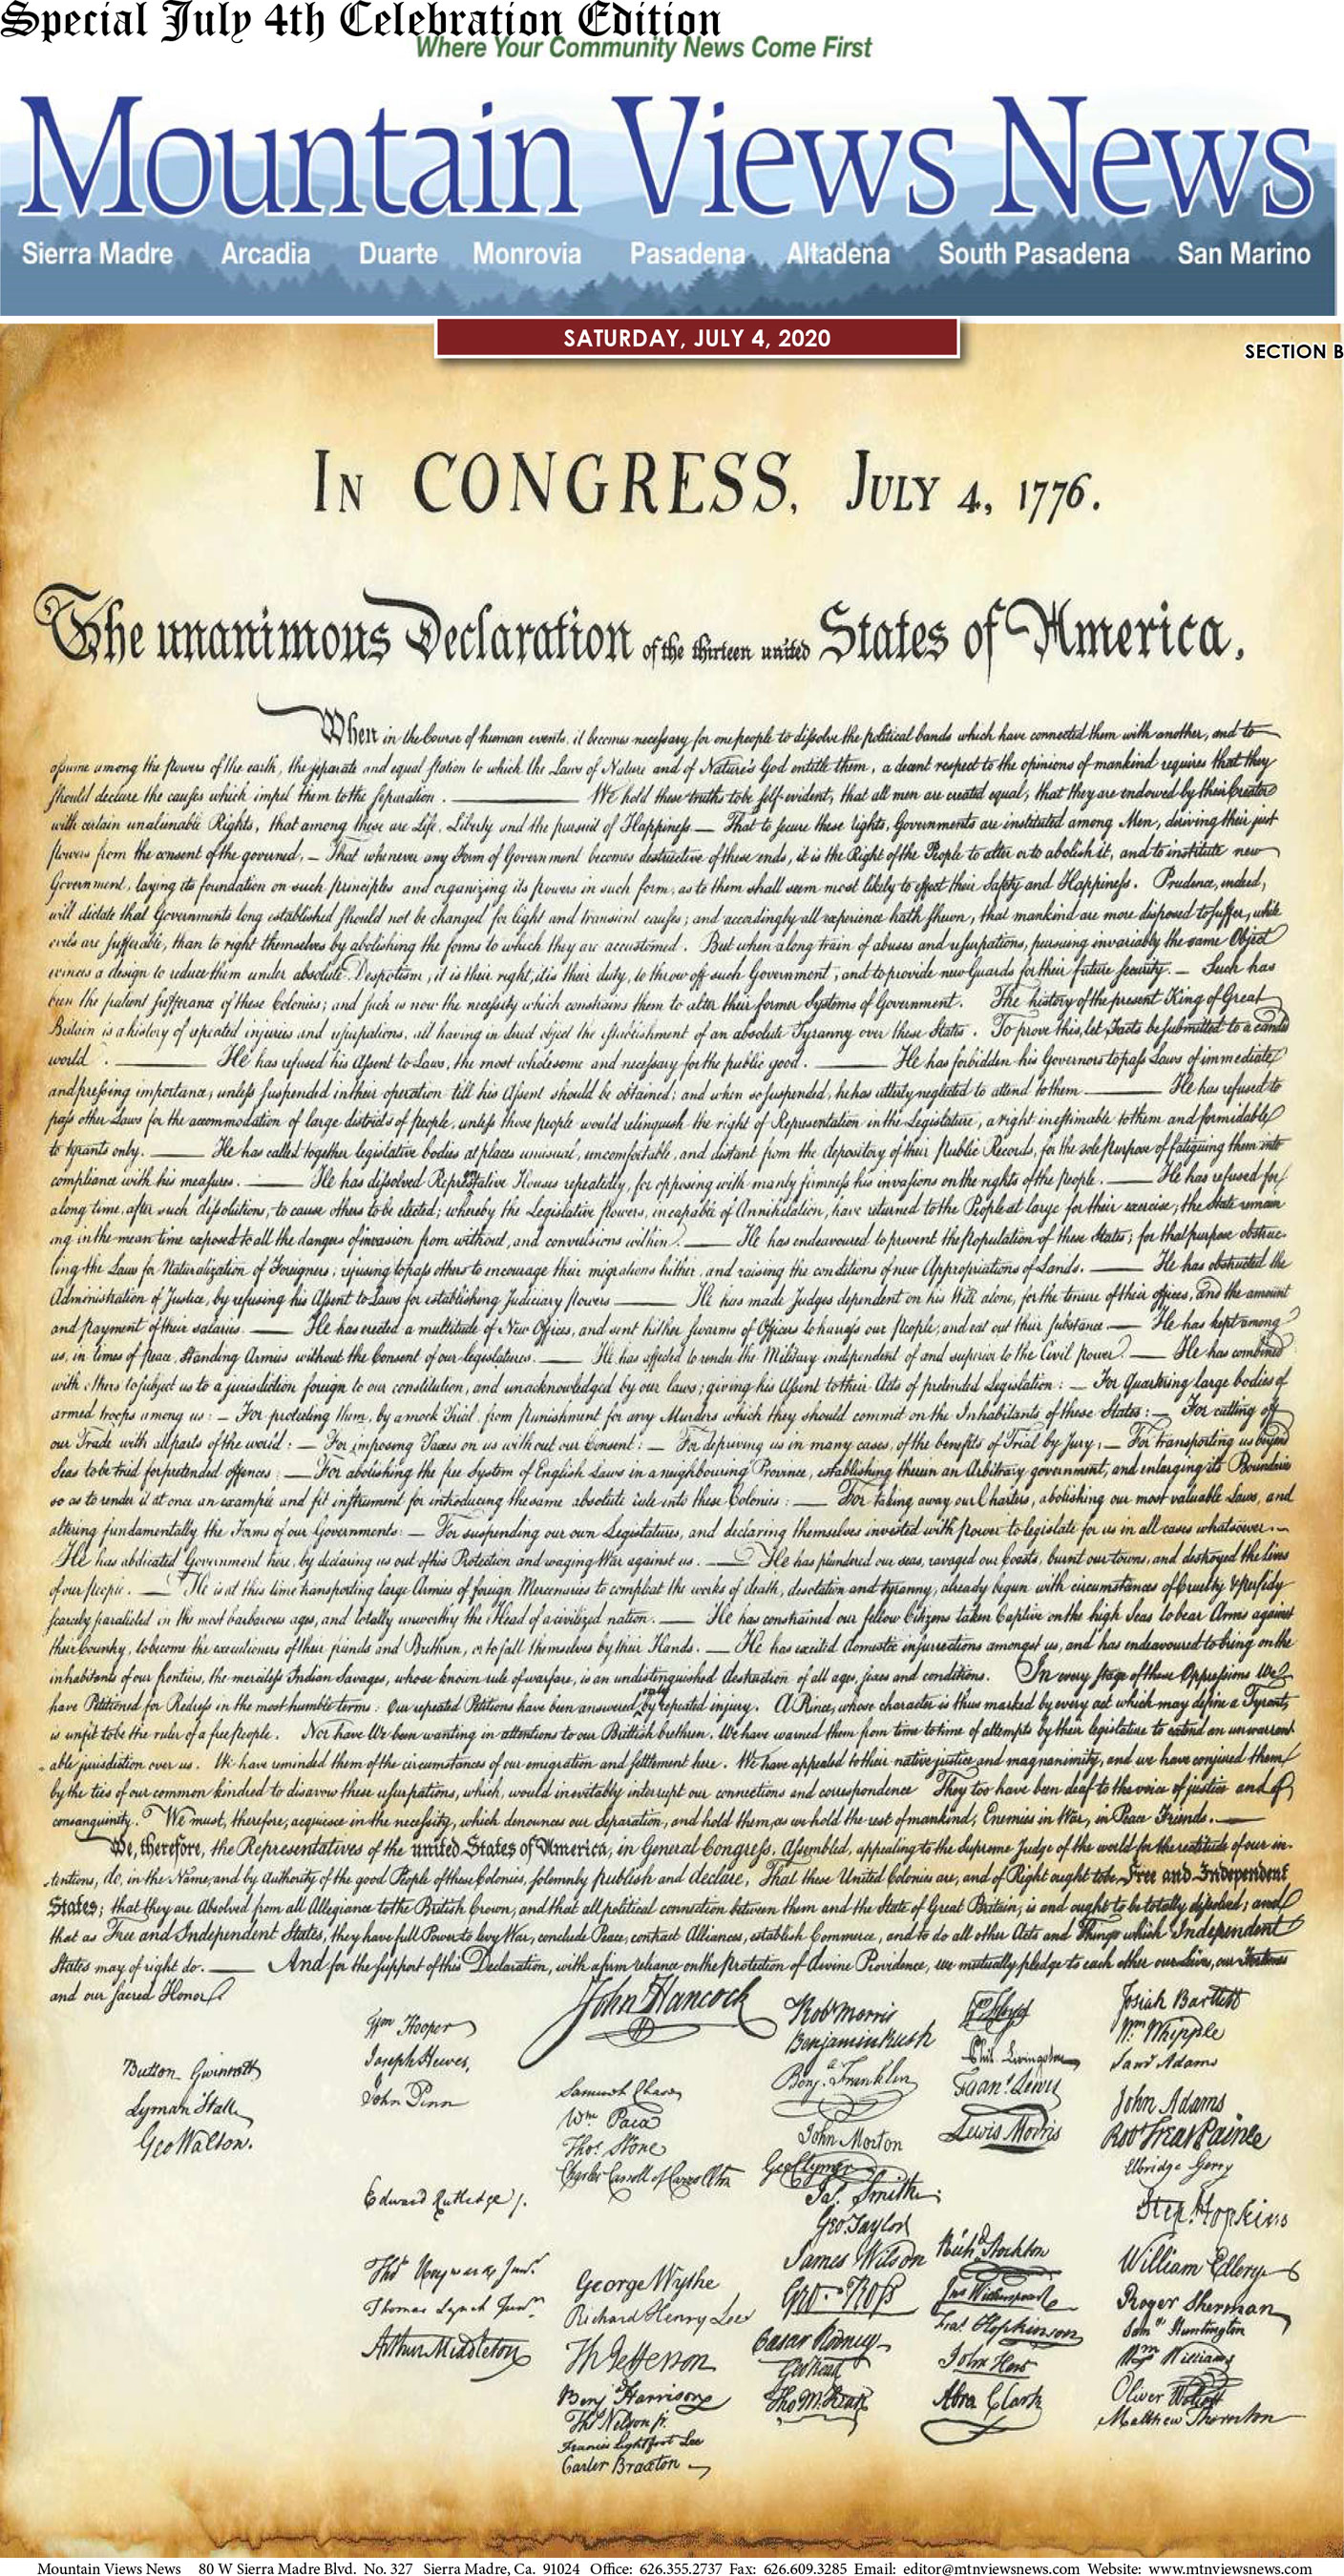 Special July 4th Celebration Edition
Where Your Community News Come First
Mountain Views News
Sierra Madre Arcadia Duarte Monrovia Pasadena Altadena South Pasadena San Marino
SATURDAY, JULY 4, 2020
SECTION B
IN CONGRESS, JULY 4, 1776.
The unanimous Declaration of the thirteen united States of America,
When in the Course of human events, it becomes necessary for one people to dissolve the political bands which have connected them with another, and to
assume among the powers of the earth, the separate and equal station to which the Laws of Nature and of Nature's God entitle them, a decent respect to the opinions of mankind requires that they
should declare the causes which impel them to the separation. We hold these truths to be self-evident, that all men are created equal, that they are endowed by their Creator
with certain unalienable Rights, that among these are Life, Liberty and the pursuit of Happiness — That to secure these rights, Governments are instituted among Men, deriving their just
powers from the consent of the governed, — That whenever any Form of Government becomes destructive of these ends, it is the Right of the People to alter or to abolish it, and to institute new
Government, laying its foundation on such principles and organizing its powers in such form, as to them shall seem most likely to effect their Safety and Happiness. Prudence, indeed,
will dictate that Governments long established should not be changed for light and transient causes; and accordingly all experience hath shewn, that mankind are more disposed to suffer, while
evils are sufferable, than to right themselves by abolishing the forms to which they are accustomed. But when a long train of abuses and usurpations, pursuing invariably the same Object
evinces a design to reduce them under absolute Despotism, it is their right, it is their duty, to throw off such Government, and to provide new Guards for their future security. — Such has
been the patient sufferance of these Colonies; and such is now the necessity which constrains them to alter their former Systems of Government. The history of the present King of Great
Britain is a history of repeated injuries and usurpations, all having in direct object the establishment of an absolute Tyranny over these States. To prove this, let Facts be submitted to a candid
world. He has refused his Assent to Laws, the most wholesome and necessary for the public good. He has forbidden his Governors to pass Laws of immediate
and pressing importance, unless suspended in their operation till his Assent should be obtained; and when so suspended, he has utterly neglected to attend to them. He has refused to
pass other Laws for the accommodation of large districts of people, unless those people would relinquish the right of Representation in the Legislature, a right inestimable to them and formidable
to tyrants only. He has called together legislative bodies at places unusual, uncomfortable, and distant from the depository of their Public Records, for the sole purpose of fatiguing them into
compliance with his measures. He has dissolved Representative Houses repeatedly, for opposing with manly firmness his invasions on the rights of the people. He has refused for
a long time, after such dissolutions, to cause others to be elected; whereby the Legislative powers, incapable of Annihilation, have returned to the People at large for their exercise; the State remain
ing in the mean time exposed to all the dangers of invasion from without, and convulsions within. He has endeavoured to prevent the population of these States; for that purpose obstruc-
ting the Laws for Naturalization of Foreigners; refusing to pass others to encourage their migrations hither, and raising the conditions of new Appropriations of Lands. He has obstructed the
Administration of Justice, by refusing his Assent to Laws for establishing Judiciary powers. He has made Judges dependent on his Will alone, for the tenure of their offices, and the amount
and payment of their salaries. He has erected a multitude of New Offices, and sent hither swarms of Officers to harrass our people, and eat out their substance. He has kept among
us, in times of peace, Standing Armies without the Consent of our legislatures. He has affected to render the Military independent of and superior to the Civil power. He has combined
with others to subject us to a jurisdiction foreign to our constitution, and unacknowledged by our laws; giving his Assent to their Acts of pretended Legislation: — For Quartering large bodies of
armed troops among us: — For protecting them, by a mock Trial, from punishment for any Murders which they should commit on the Inhabitants of these States: — For cutting off
our Trade with all parts of the world: — For imposing Taxes on us without our Consent: — For depriving us in many cases, of the benefits of Trial by Jury: — For transporting us beyond
Seas to be tried for pretended offences: — For abolishing the free System of English Laws in a neighbouring Province, establishing therein an Arbitrary government, and enlarging its Boundries
so as to render it at once an example and fit instrument for introducing the same absolute rule into these Colonies: — For taking away our Charters, abolishing our most valuable Laws, and
altering fundamentally the Forms of our Governments: — For suspending our own Legislatures, and declaring themselves invested with power to legislate for us in all cases whatsoever. —
He has abdicated Government here, by declaring us out of his Protection and waging War against us. He has plundered our seas, ravaged our Coasts, burnt our towns, and destroyed the lives
of our people. He is at this time transporting large Armies of foreign Mercenaries to compleat the works of death, desolation and tyranny, already begun with circumstances of Cruelty & perfidy
scarcely paralleled in the most barbarous ages, and totally unworthy the Head of a civilized nation. He has constrained our fellow Citizens taken Captive on the high Seas to bear Arms against
their Country, to become the executioners of their friends and Brethren, or to fall themselves by their Hands. He has excited domestic insurrections amongst us, and has endeavoured to bring on the
inhabitants of our frontiers, the merciless Indian Savages, whose known rule of warfare, is an undistinguished destruction of all ages, sexes and conditions. In every stage of these Oppressions We
have Petitioned for Redress in the most humble terms: Our repeated Petitions have been answered only by repeated injury. A Prince, whose character is thus marked by every act which may define a Tyrant,
is unfit to be the ruler of a free people. Nor have We been wanting in attentions to our Brittish brethren. We have warned them from time to time of attempts by their legislature to extend an unwarrant-
able jurisdiction over us. We have reminded them of the circumstances of our emigration and settlement here. We have appealed to their native justice and magnanimity, and we have conjured them
by the ties of our common kindred to disavow these usurpations, which, would inevitably interrupt our connections and correspondence They too have been deaf to the voice of justice and of
consanguinity. We must, therefore, acquiesce in the necessity, which denounces our Separation, and hold them, as we hold the rest of mankind, Enemies in War, in Peace Friends.
We, therefore, the Representatives of the united States of America, in General Congress, Assembled, appealing to the Supreme Judge of the world for the rectitude of our in-
tentions, do, in the Name, and by Authority of the good People of these Colonies, solemnly publish and declare, That these United Colonies are, and of Right ought to be Free and Independent
States; that they are Absolved from all Allegiance to the British Crown, and that all political connection between them and the State of Great Britain, is and ought to be totally dissolved; and
that as Free and Independent States, they have full Power to levy War, conclude Peace, contract Alliances, establish Commerce, and to do all other Acts and Things which Independent
States may of right do. And for the support of this Declaration, with a firm reliance on the Protection of divine Providence, we mutually pledge to each other our Lives, our Fortunes
and our sacred Honor.
Button Gwinnett
Lyman Hall
Geo Walton.
Wm Hooper
Joseph Hewes,
John Penn
Edward Rutledge
Thos Heyward Junr.
Thomas Lynch Junr.
Arthur Middleton
John Hancock
Samuel Chase
Wm Paca
Thos. Stone
Charles Carroll of Carrollton
George Wythe
Richard Henry Lee
Th Jefferson
Benj Harrison
Thos Nelson jr.
Francis Lightfoot Lee
Carter Braxton
Robt Morris
Benjamin Rush
Benj. Franklin
John Morton
Geo Clymer
Jas. Smith
Geo. Taylor
James Wilson
Geo. Ross
Caesar Rodney
Geo Read
Tho M:Kean
Phil. Livingston
Frans. Lewis
Lewis Morris
Richd. Stockton
Jno Witherspoon
Fras. Hopkinson
John Hart
Abra Clark
Josiah Bartlett
Wm Whipple
Saml Adams
John Adams
Robt Treat Paine
Elbridge Gerry
Step. Hopkins
William Ellery
Roger Sherman
Saml Huntington
Wm Williams
Oliver Wolcott
Matthew Thornton
Mountain Views News 80 W Sierra Madre Blvd. No. 327 Sierra Madre, Ca. 91024 Office: 626.355.2737 Fax: 626.609.3285 Email: editor@mtnviewsnews.com Website: www.mtnviewsnews.com